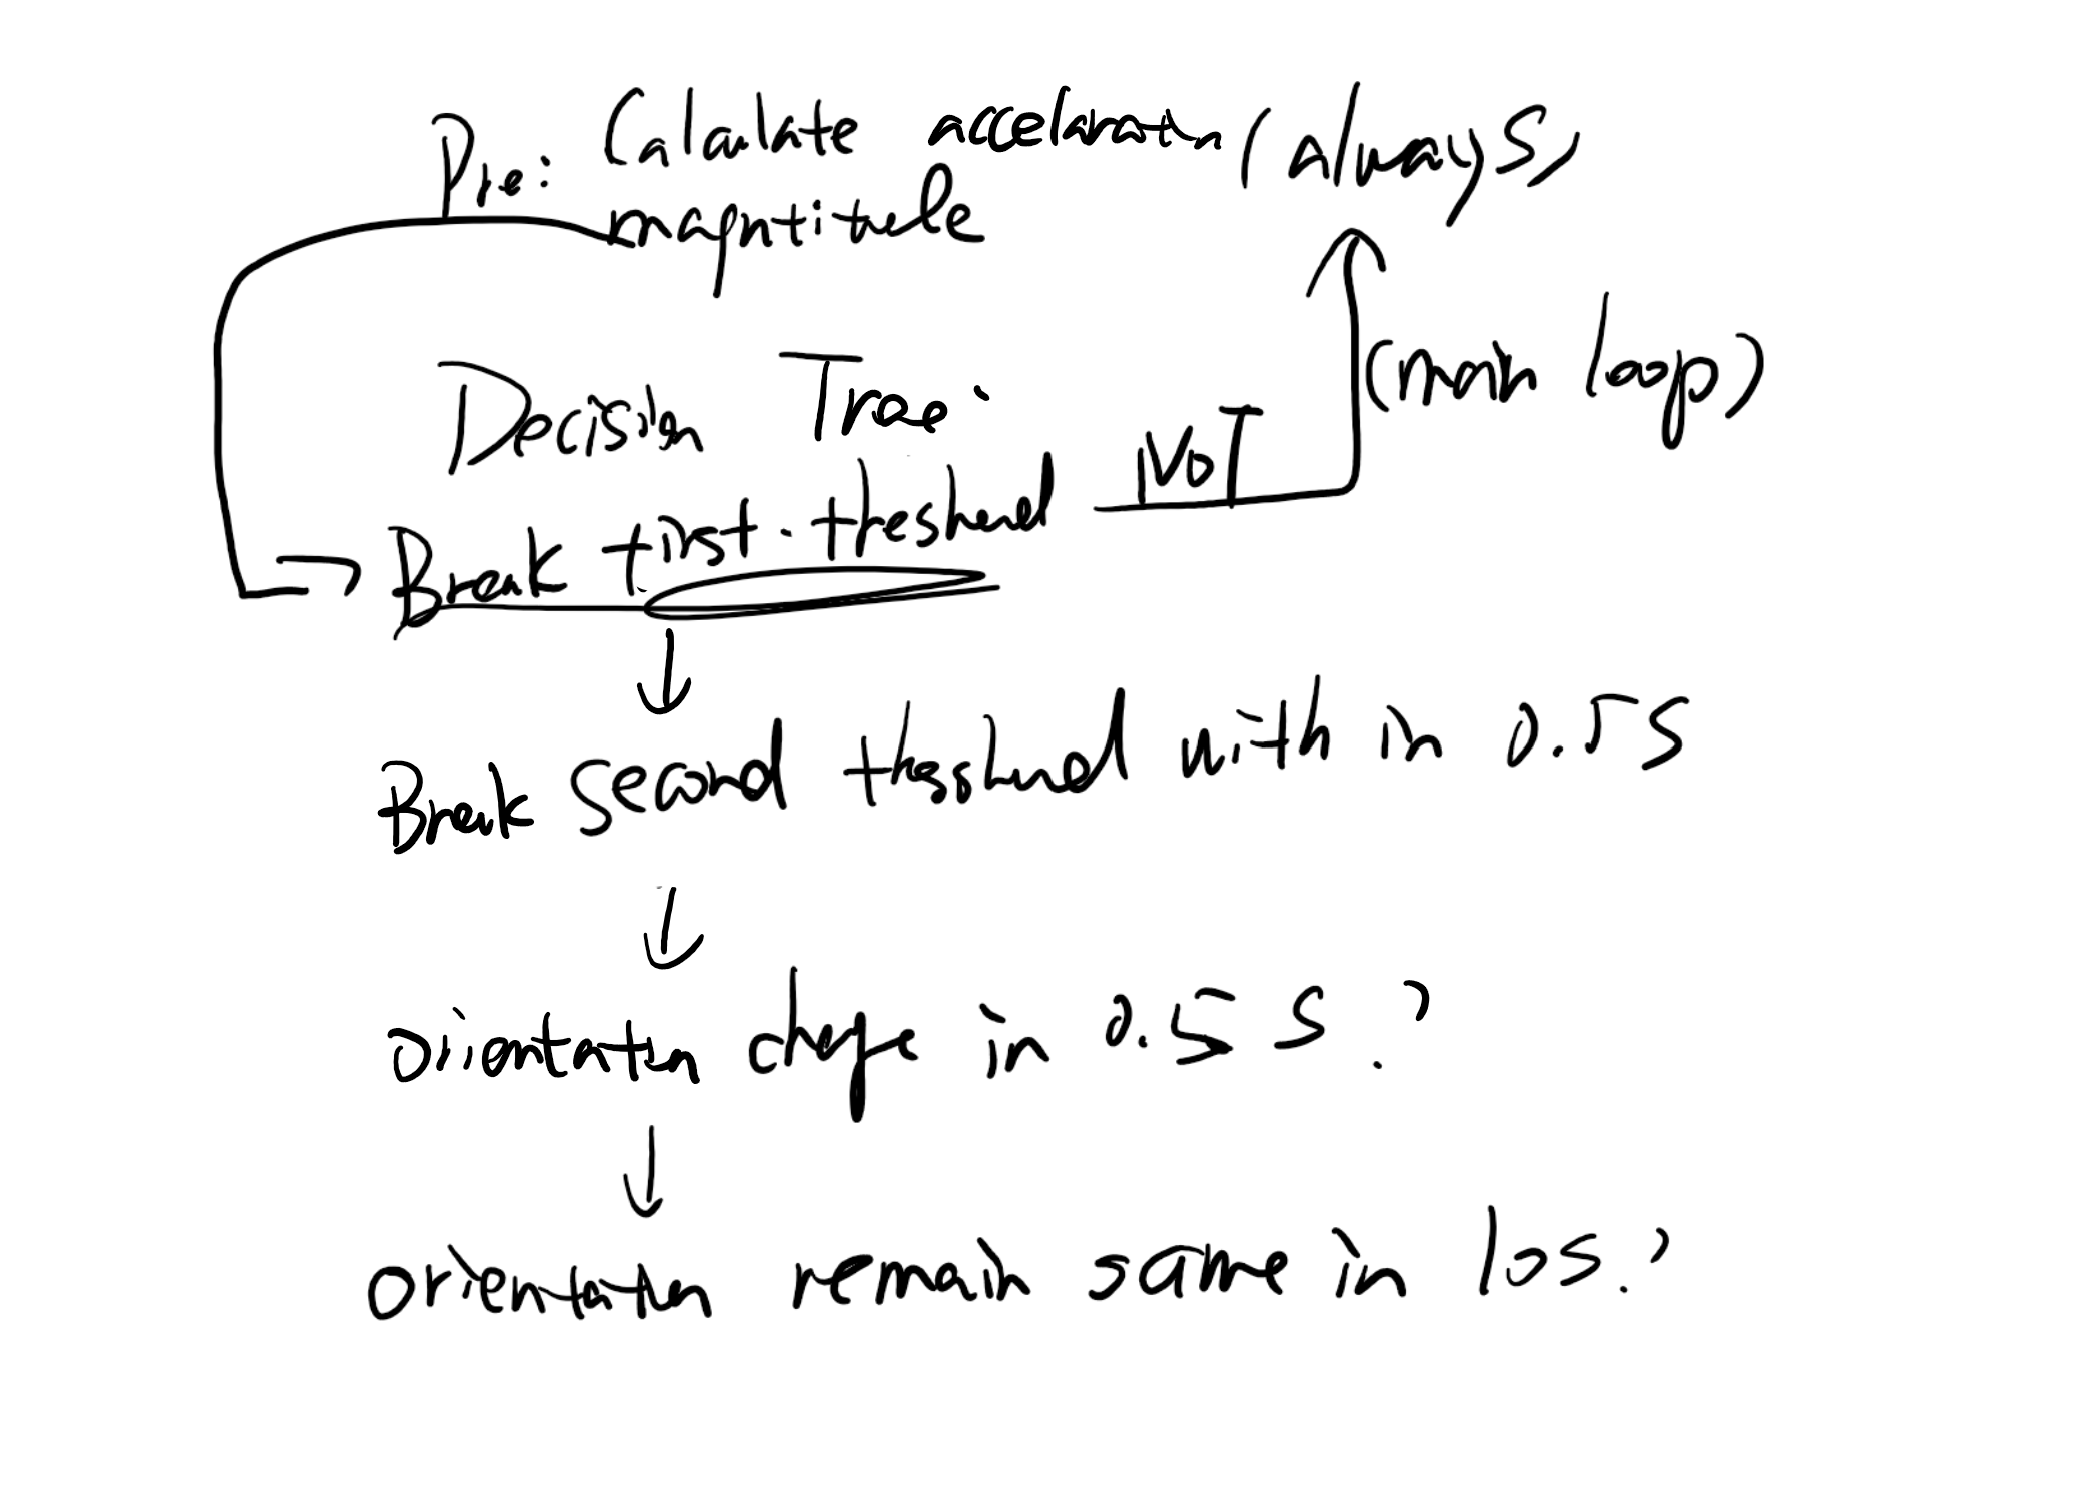 Pre: Calculate acceleration (always)
magntitude
Decision Tree:
NOT (main loop)
Break first threshend
Break second threshend with in 0.5s
Orientation change in 0.5s?
Orientation remain same in 10s?